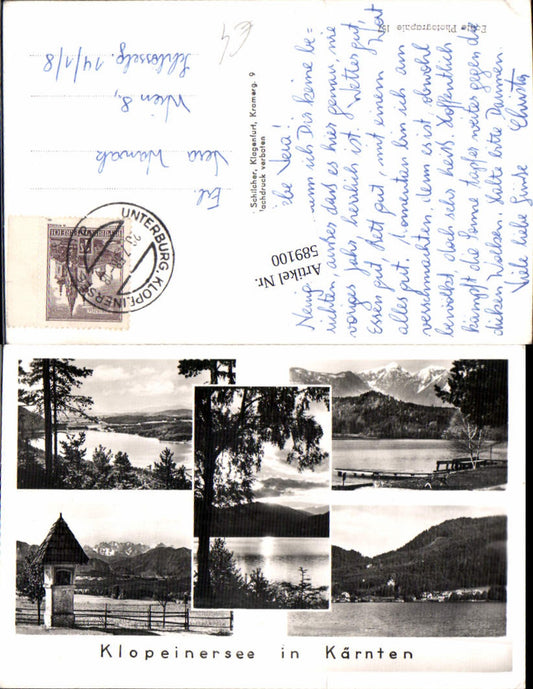 Echte Photographie 157
Liebe Vera!
Meinig kenn ich Dir keine be-
richten, außer das es hier genau, wie
voriges Jahr, herrlich ist. Wetter gut,
Essen gut, Bett gut, mit einem Wort
alles gut. Momentan bin ich am
verschmachten, denn es ist obwohl
bewölkt, doch sehr heiß. Hoffentlich
kämpft die Sonne tapfer weiter gegen die
dicken Wolken. Halte bitte Daumen.
Viele liebe Grüße Christa
Schilcher, Klagenfurt, Kramerg. 9
Nachdruck verboten
Frl.
Vera
Wien 8,
Schlösselg. 14/1/8
€4
UNTERBURG KLOPEINERSEE
REPUBLIK ÖSTERREICH
Artikel Nr.
589100
Klopeinersee in Kärnten